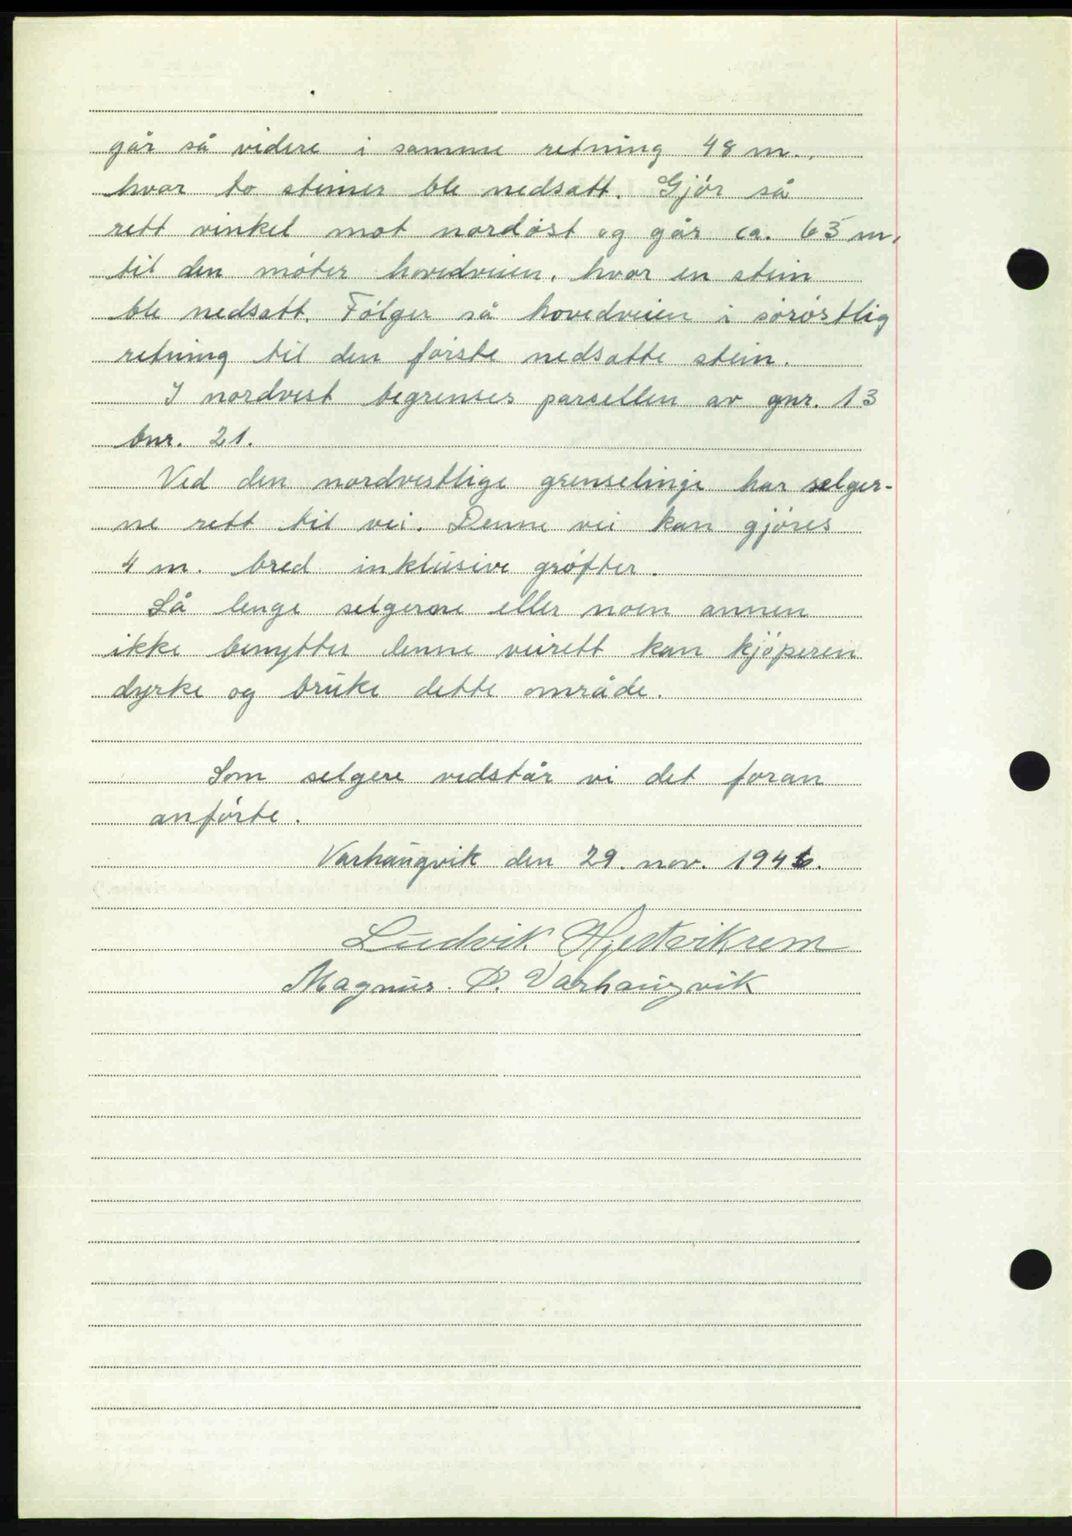 går så videre i samme retning 48 m.,
hvor to steiner ble nedsatt. Gjör så
rett vinkel mot nordöst og går ca. 63 m,
til den möter hovedveien, hvor en stein
ble nedsatt. Fölger så hovedveien i söröstlig
retning til den förste nedsatte stein.
I nordvest begrenses parsellen av gnr. 13
bnr. 21.
Ved den nordvestlige grenselinje har selger-
ne rett til vei. Denne vei kan gjöres
4 m. bred inklusive gröfter.
Så lenge selgerne eller noen annen
ikke benytter denne veirett kan kjöperen
dyrke og bruke dette område.
Som selgere vedstår vi det foran
anförte.
Varhaugvik den 29. nov. 1946.
Ludvik Hjertvikrem
Magnus. P. Varhaugvik